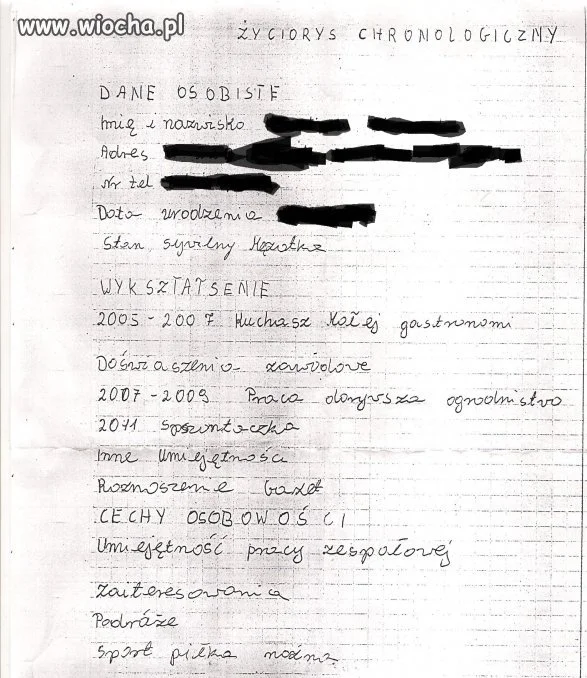 www.wiocha.pl
ŻYCIORYS CHRONOLOGICZNY
DANE OSOBISTE
Imię i nazwisko
Adres
Nr tel
Data urodzenia
Stan sywilny Mężatka
WYKSZTAŁSENIE
2005-2007 Kuchasz Małej gastronomi
Doświaszenia zawodowe
2007-2009 Praca dorywsza ogrodnistwo
2011 Spszontaczka
Inne Umiejętności
Roznoszenie Gazet
CECHY OSOBOWOŚCI
Umiejętność pracy zespołowej
Zaiteresowania
Podráże
Sport piłka nożna